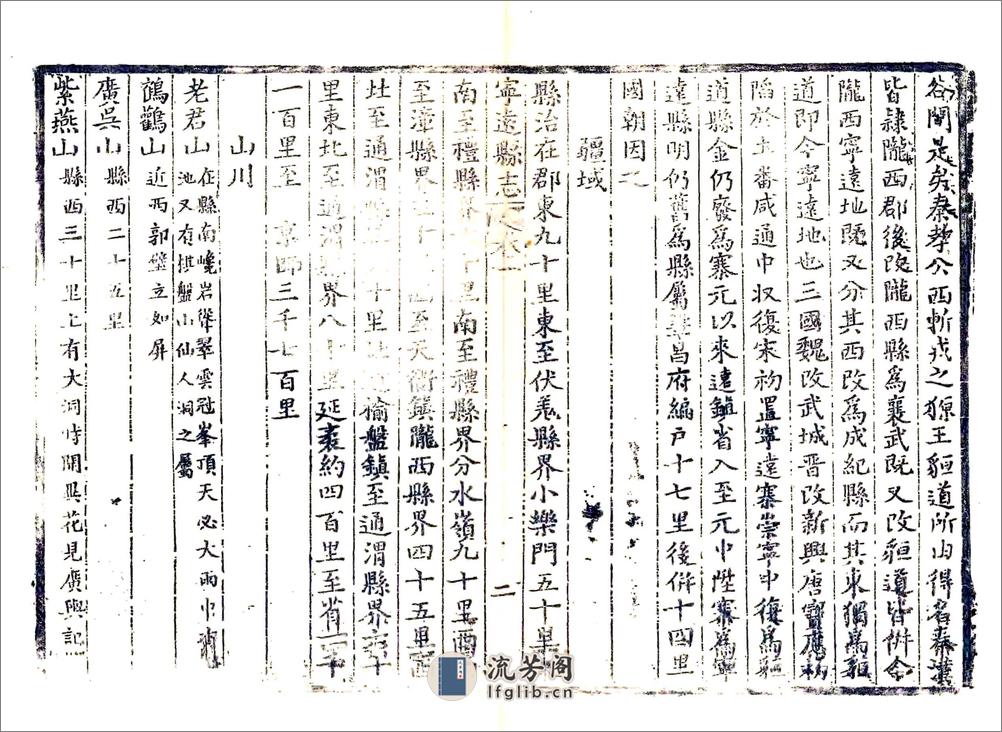 谷閒是矣秦孝公西斬戎之獂王䝠道所由得名秦漢
皆隸隴西郡後改隴西縣爲襄武既又改䝠道皆併今
隴西寧遠地既又分其西改爲成紀縣而其東獨爲䝠
道即今寧遠地也三國魏改武城晉改新興唐寶應初
陷於土番咸通中収復宋初置寧遠寨崇寧中復爲䝠
道縣金仍廢爲寨元以來遠鎮省入至元中陞寨爲寧
遠縣明仍舊爲縣屬鞏昌府編戶十七里後併十四里
國朝因之
疆域
縣治在郡東九十里東至伏羌縣界小樂門五十里
寧遠縣志 卷一 二
南至禮縣 十里南至禮縣界分水嶺九十里西
至漳縣界 十 西至天衢鎮隴西縣界四十五里西
北至通渭 十里北 榆盤鎮至通渭縣界六十
里東北至通渭縣界八十里延袤約四百里至省 十
一百里至 京師三千七百里
山川
老君山在縣南巉岩聳翠雲冠峯頂天必大雨巾 池又有棋盤山仙人洞之屬
鶴鸛山近西郭壁立如屏
廣吳山縣西二十五里
紫燕山縣西三十里上有大洞時開異花見廣輿記
流芳阁
lfglib.cn